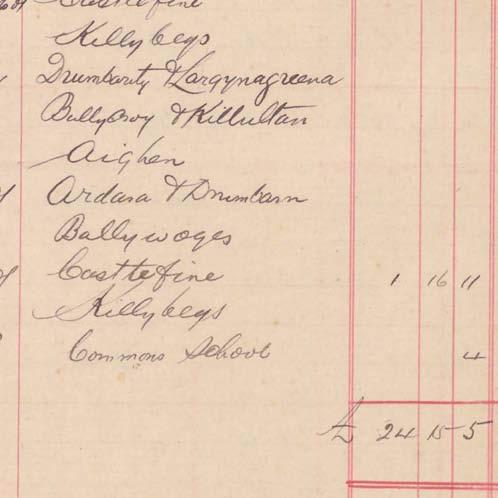 Castlefine
Killybegs
Drumbarity & Largynagreena
Ballyboy & Killultan
Aighen
Ardara & Drumbarn
Ballywoges
Casttefine 1 16 11
Killybegs
Commons School 4
£ 24 15 5